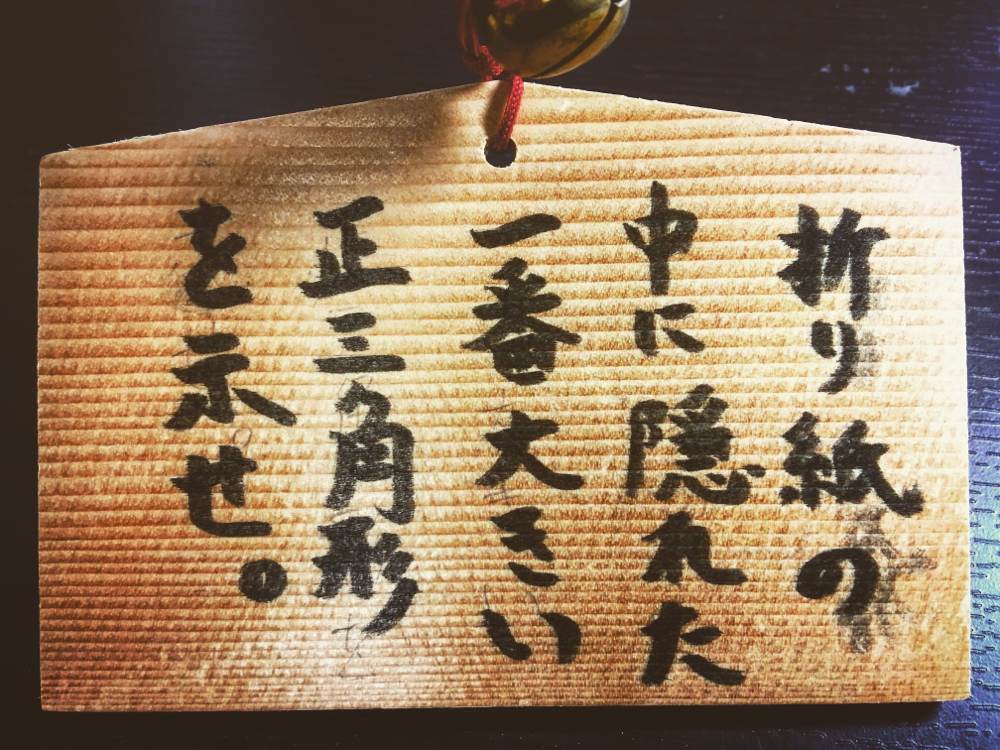 折り紙の
中に隠れた
一番大きい
正三角形
を示せ。